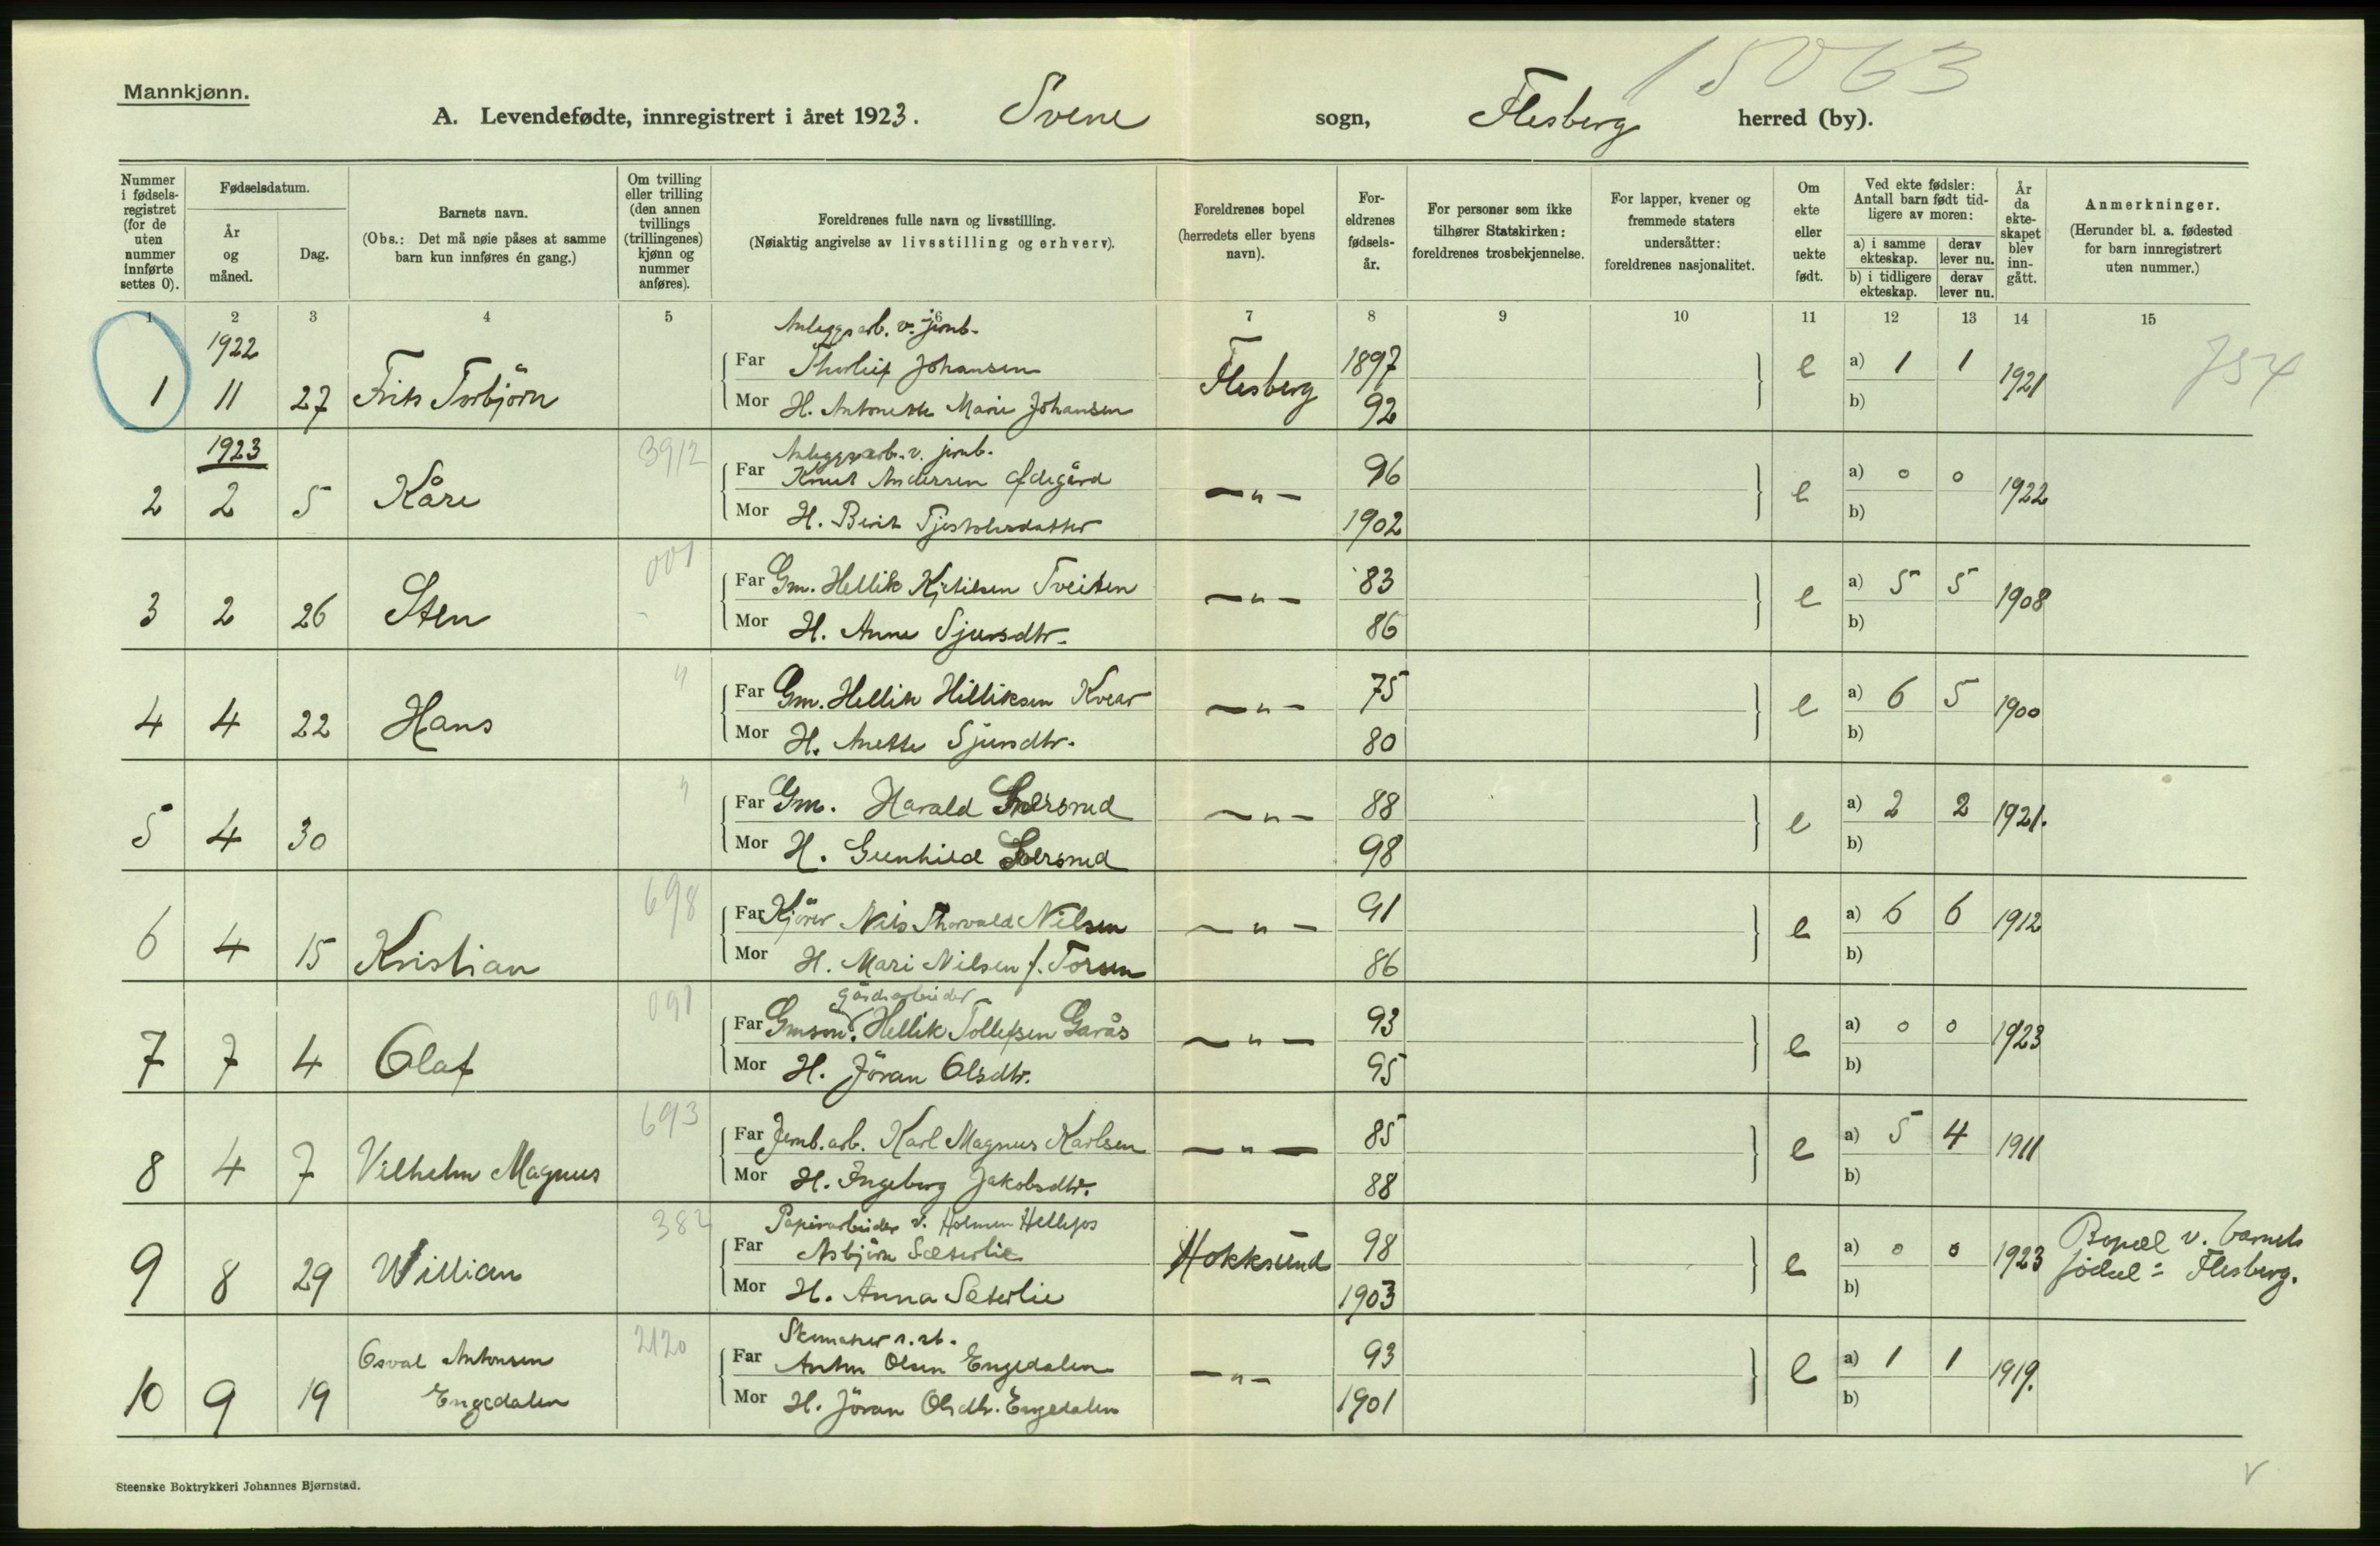 15063
Mannkjønn.
A. Levendefødte, innregistrert i året 1923. Svene sogn, Flesberg herred (by).
Nummer i fødsels-registret (for de uten nummer innførte settes 0).
Fødselsdatum.
År og måned.
Dag.
Barnets navn.
(Obs.: Det må nøie påses at samme barn kun innføres én gang.)
Om tvilling eller trilling (den annen tvillings (trillingenes) kjønn og nummer anføres).
Foreldrenes fulle navn og livsstilling.
(Nøiaktig angivelse av livsstilling og erhverv).
Foreldrenes bopel (herredets eller byens navn).
For-eldrenes fødsels-år.
For personer som ikke tilhører Statskirken: foreldrenes trosbekjennelse.
For lapper, kvener og fremmede staters undersåtter: foreldrenes nasjonalitet.
Om ekte eller uekte født.
Ved ekte fødsler: Antall barn født tid-ligere av moren:
a) i samme ekteskap. derav lever nu.
b) i tidligere ekteskap. derav lever nu.
År da ekte-skapet blev inn-gått.
Anmerkninger.
(Herunder bl. a. fødested for barn innregistrert uten nummer.)
1 2 3 4 5 6 7 8 9 10 11 12 13 14 15
1922
Anleggsarb. v. jernb.
1 11 27 Frits Torbjörn Far Thorleif Johansen Flesberg 1897 e a) 1 1 1921 754
Mor H. Antonette Marie Johansen 92 b)
1923
3912 Anleggsarb. v. jernb.
2 2 5 Kåre Far Knut Andersen Ødegård —„— 96 e a) 0 0 1922
Mor H. Berit 1902 b)
001
3 2 26 Sten Far Gm. Hellik Kjetilsen Tveiten —„— 83 e a) 5 5 1908
Mor H. Anne Sjursdtr. 86 b)
4 4 22 Hans „ Far Gm. Hellik Helliksen Kvear —„— 75 e a) 6 5 1900
Mor H. Anette Sjursdtr. 80 b)
5 4 30 „ Far Gm. Harald —„— 88 e a) 2 2 1921.
Mor H. Gunhild 98 b)
698
6 4 15 Kristian Far Kjörer Nils Thorvald Nilsen —„— 91 e a) 6 6 1912
Mor H. Mari Nilsen f. Torsen 86 b)
091 gårdsarbeider
7 7 4 Olaf Far Gmsønn. Hellik Tollefsen Garås —„— 93 e a) 0 0 1923
Mor H. Jöran Olsdtr. 95 b)
693
8 4 7 Vilhelm Magnus Far Jernb.arb. Karl Magnus Karlsen —„— 85 e a) 5 4 1911
Mor H. Ingeborg Jakobsdtr. 88 b)
382 Papirarbeider v. Holmen Hellefos
9 8 29 Willian Far Asbjörn Sæterlie Hokksund 98 e a) 0 0 1923 Bopæl v. barnets
födsel = Flesberg.
Mor H. Anna Sæterlie 1903 b)
2120 Skumaker
10 9 19 Osval Antonsen
Engedalen
Far Anton Olsen Engedalen —„— 93 e a) 1 1 1919.
Mor H. Jöran Olsdtr. Engedalen 1901 b)
Steenske Boktrykkeri Johannes Bjørnstad.
v